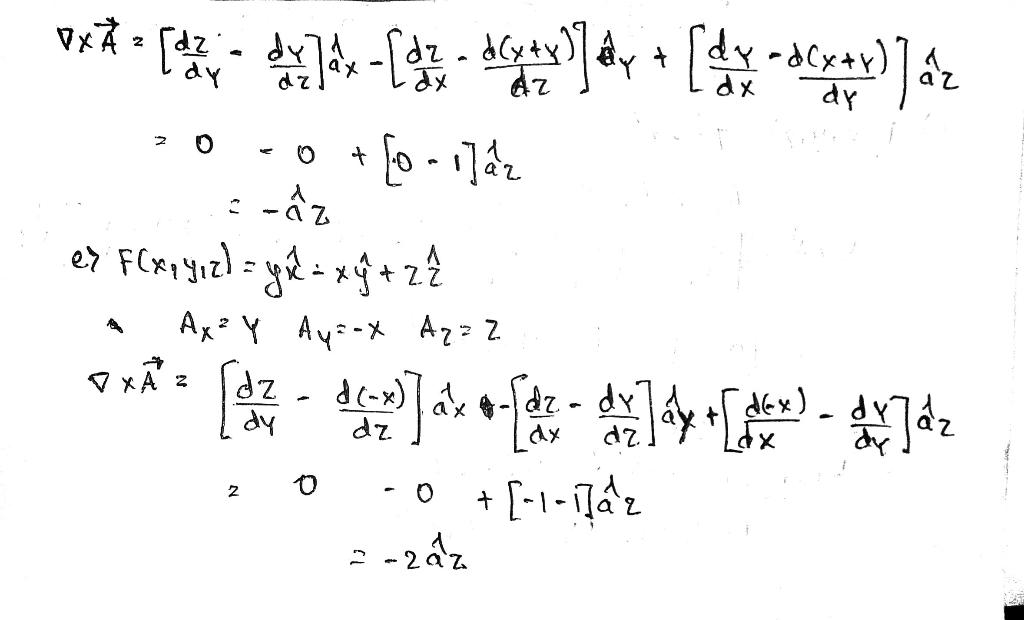 ∇×A⃗ = [dz/dy - dy/dz] âx - [dz/dx - d(x+y)/dz] ây + [dy/dx - d(x+y)/dy] âz
= 0 - 0 + [0 - 1] âz
= -âz
e> F(x,y,z) = yx̂ - xŷ + zẑ
Ax = y Ay = -x Az = z
∇×A⃗ = [dz/dy - d(-x)/dz] âx - [dz/dx - dy/dz] ây + [d(-x)/dx - dy/dy] âz
= 0 - 0 + [-1-1] âz
= -2âz